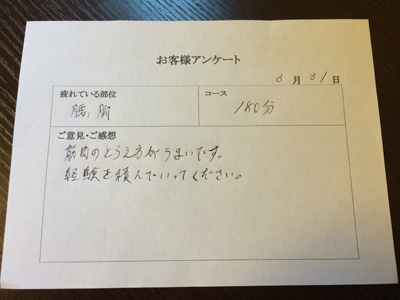 お客様アンケート
3月31日
疲れている部位
コース
腰,脚
180分
ご意見・ご感想
筋肉のとらえ方がうまいです。
経験を積んでいってください。